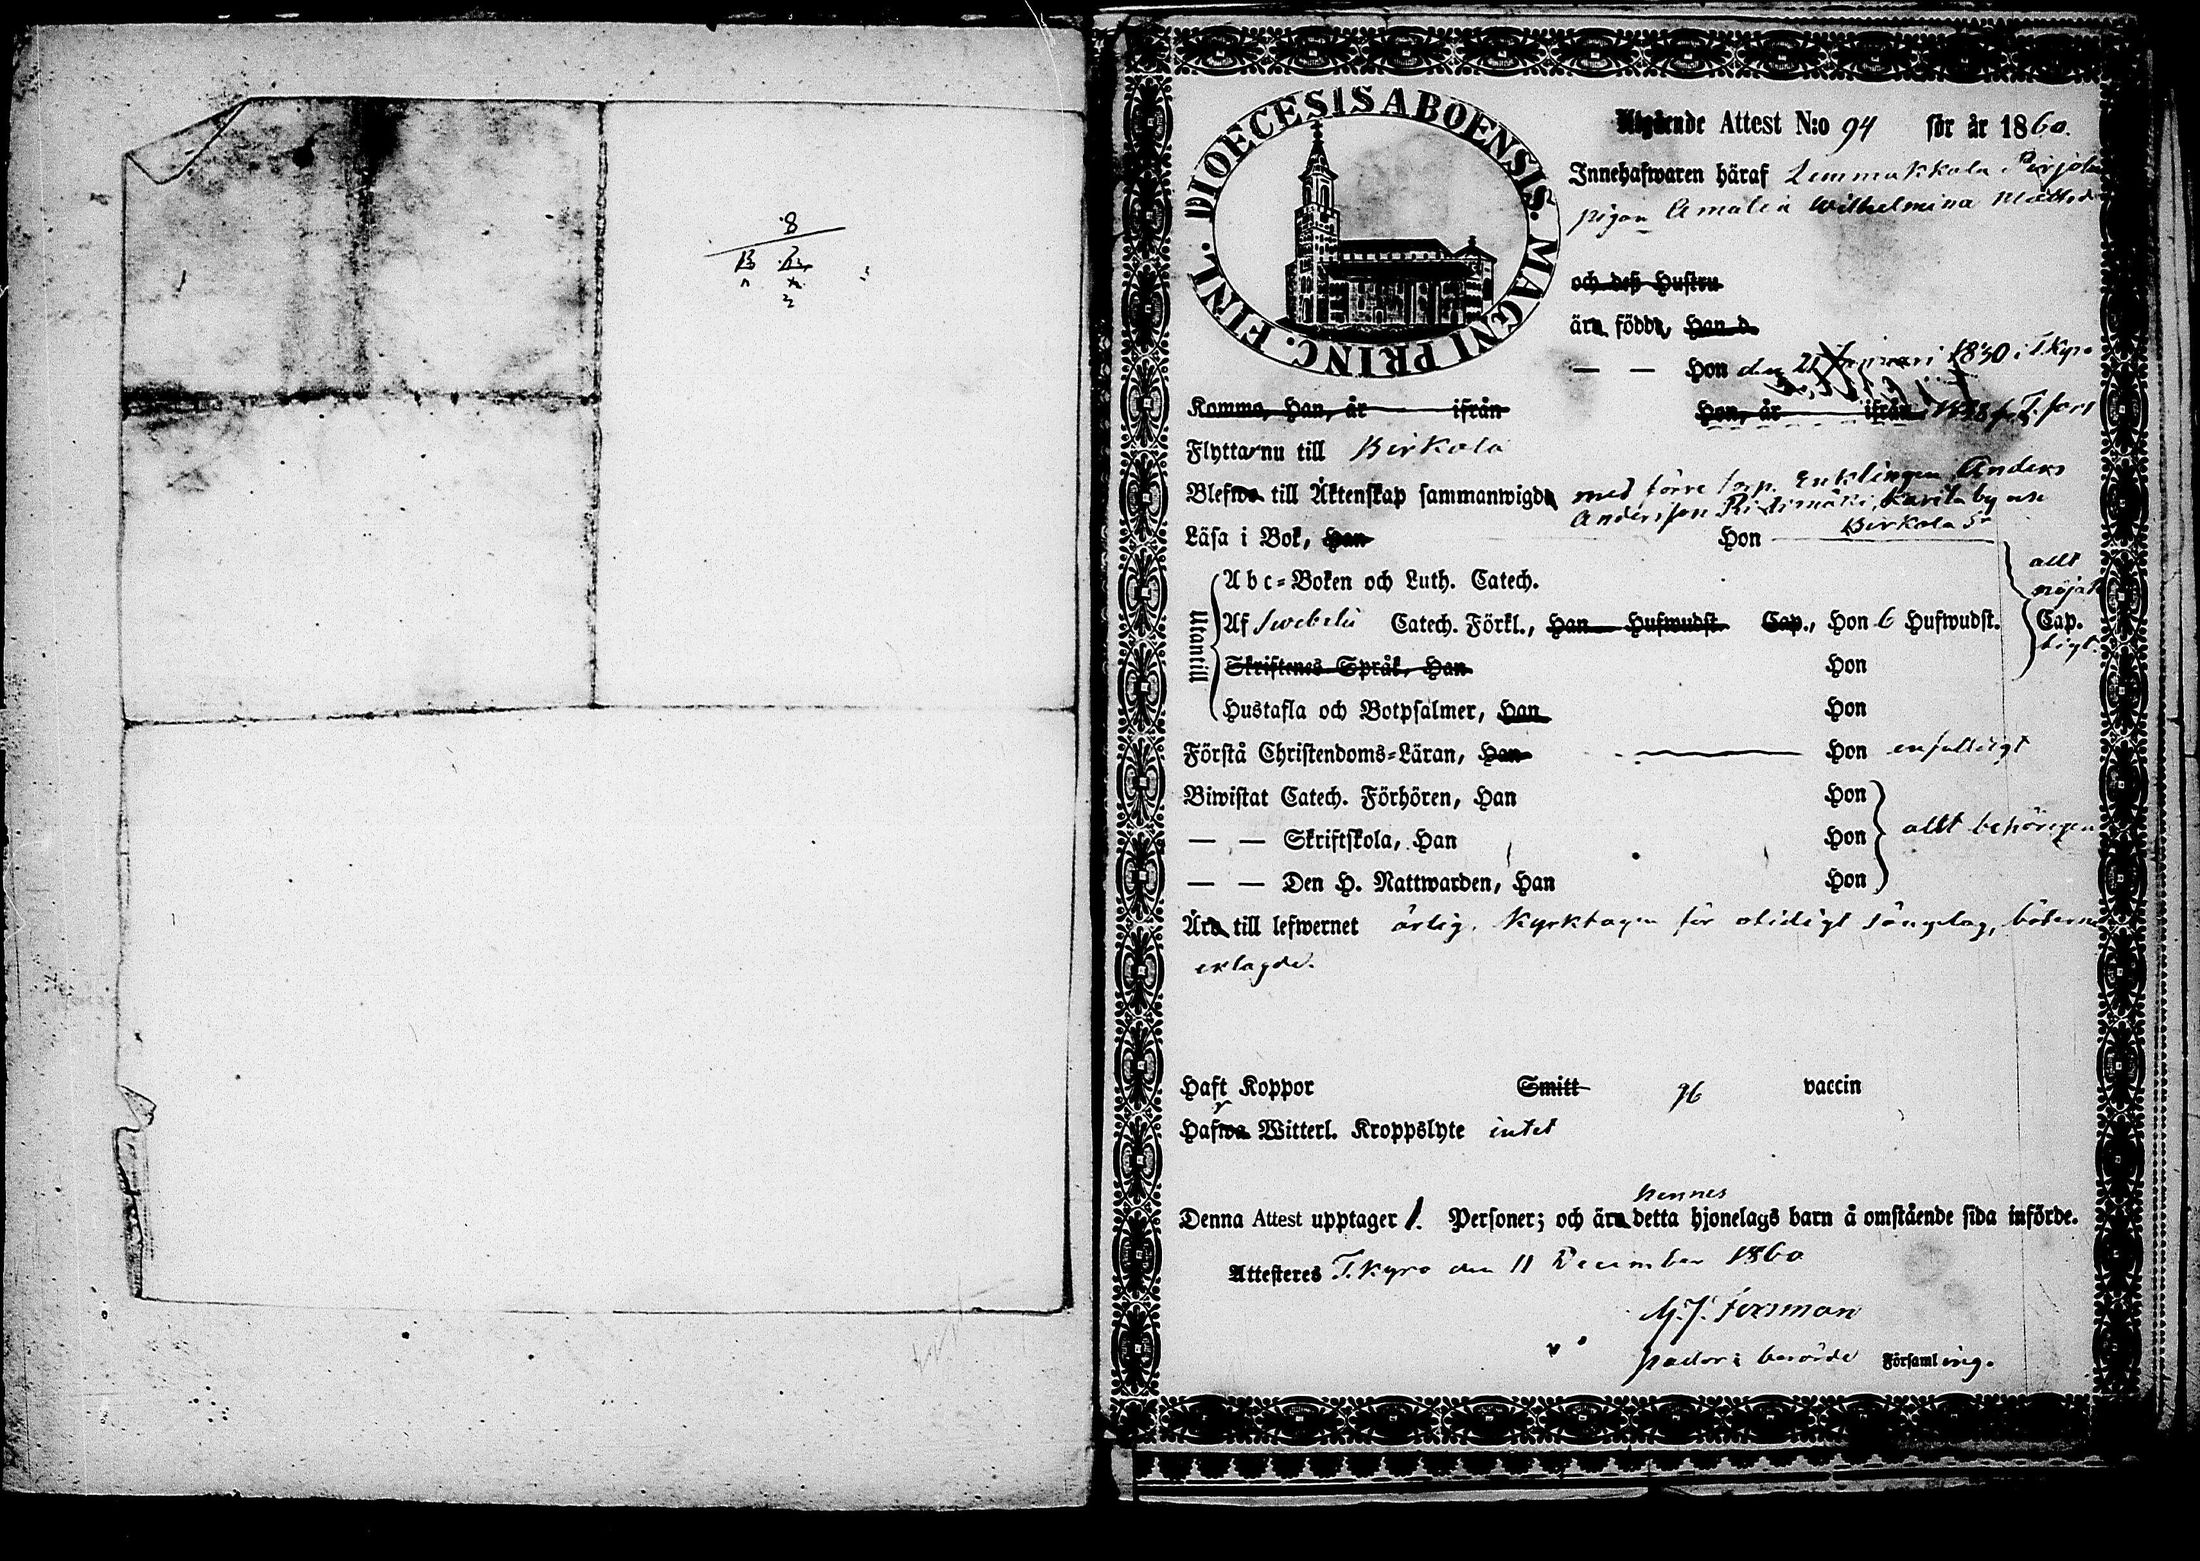 8
DIOECESIS ABOENSIS. MAGNI PRINC. FINL.
Utgående Attest N:o 94 för år 1860.
Innehafwaren häraf Lemmakkala Pirjola
pigan Amalia Wilhelmina Mattsd
och deß Hustru
äro födde, Han d.
— — Hon den 21 Januari 1830 i T.kyro
Komma, Han, år ifrån Hon, år ifrån
Flytta nu till Birkala
Blefwo till Äktenskap sammanwigde med förre torp. Enklingen Anders
Andersson Ristimäki, by
Birkala Sn
Läsa i Bok, Han Hon
allt
nöjak
tigt.
Utantill
Abc-Boken och Luth. Catech.
Af Swebelii Catech. Förkl., Han Hufwudst. Cap., Hon 6 Hufwudst. Cap.
Skriftenes Språk, Han Hon
Hustafla och Botpsalmer, Han Hon
Förstå Christendoms-Läran, Han Hon enfaldigt
Biwistat Catech. Förhören, Han Hon
— — Skriftskola, Han Hon allt behörigen
— — Den H. Nattwarden, Han Hon
Äro till lefwernet ärlig, Kyrktagen för otidigt sängelag, böterne
erlagde.
Haft Koppor Smitt vaccin
Hafwa Witterl. Kroppslyte intet
hennes
Denna Attest upptager 1. Personer; och äro detta hjonelags barn å omstående sida införde.
Attesteres T.kyro den 11 December 1860
Forsman
pastor i berörde Församling.